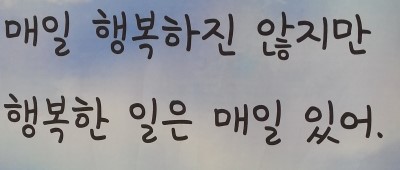 매일 행복하진 않지만
행복한 일은 매일 있어.